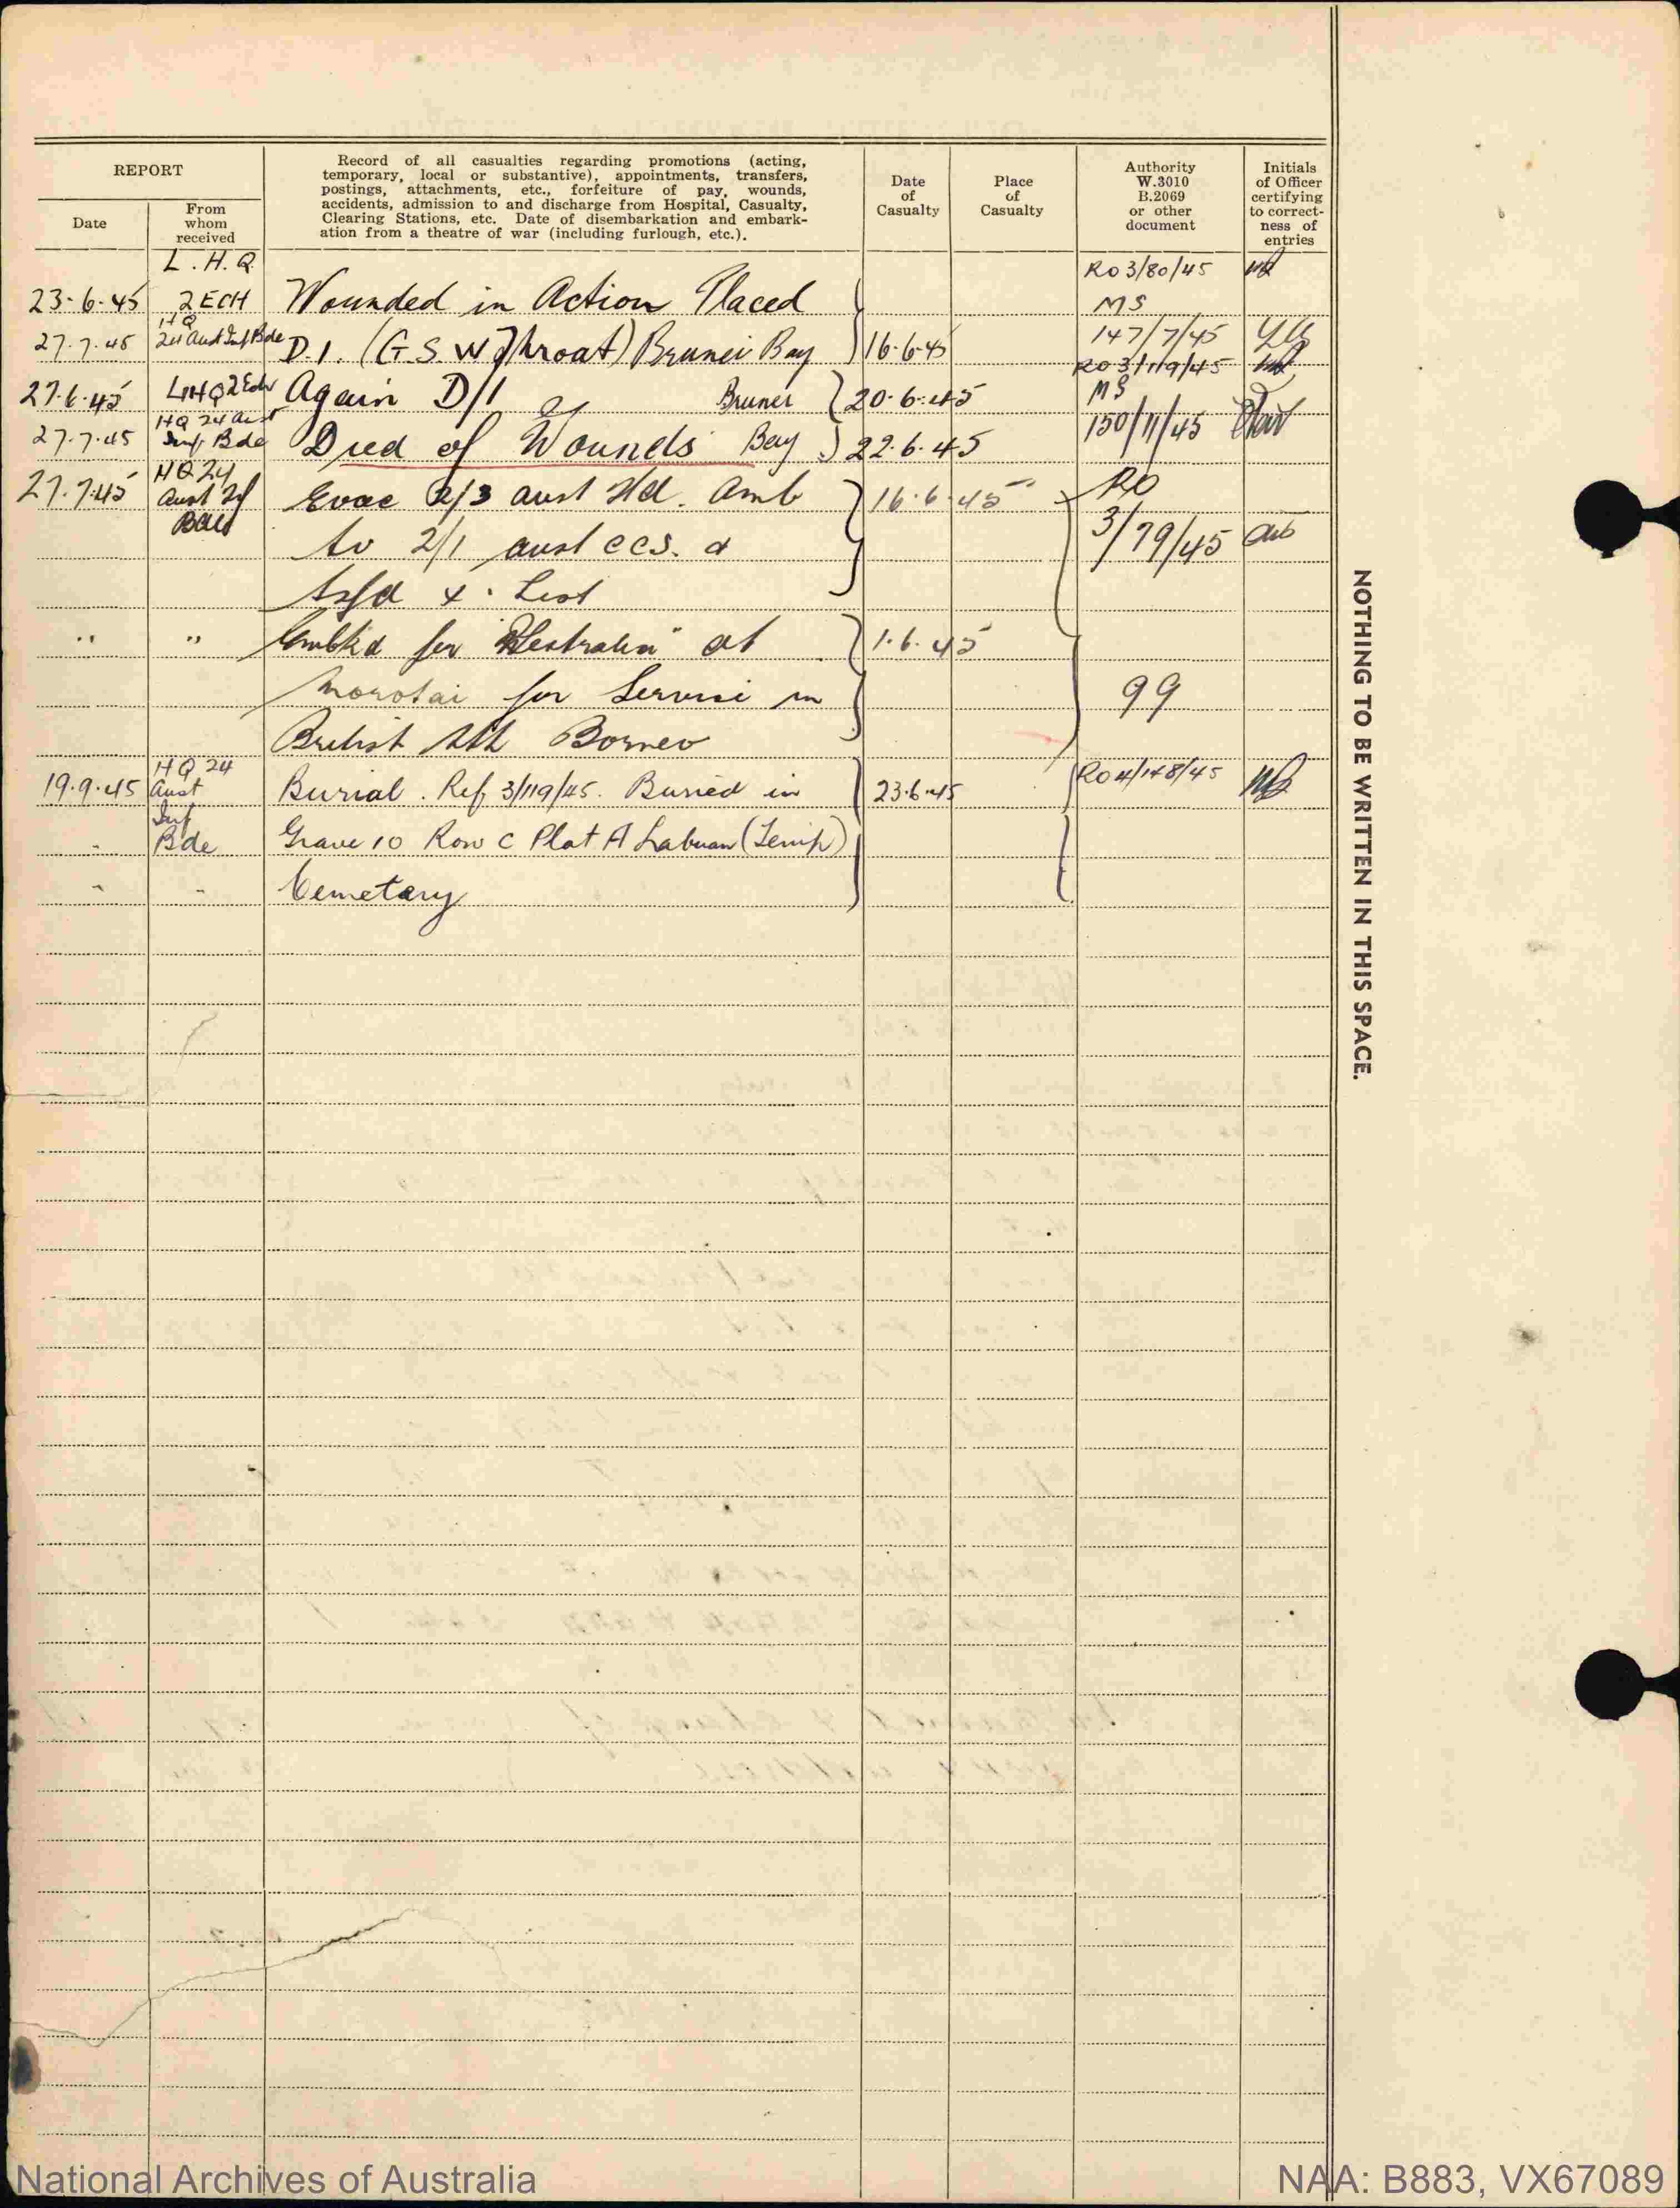 REPORT
Date
From whom received
Record of all casualties regarding promotions (acting,
temporary, local or substantive), appointments, transfers,
postings, attachments, etc., forfeiture of pay, wounds,
accidents, admission to and discharge from Hospital, Casualty,
Clearing Stations, etc. Date of disembarkation and embark-
ation from a theatre of war (including furlough, etc.).
Date of Casualty
Place of Casualty
Authority W.3010 B.2069 or other document
Initials of Officer certifying to correct-ness of entries
L.H.Q. RO3/80/45
23-6-45 2 ECH Wounded in Action Placed MS
27.7.45 HQ 24 Aust Inf Bde D.I. (G.S.W Throat) Brunei Bay 16-6-45 147/7/45
RO3/119/45
27.6.45 LHQ 2 Ech Again D/I Brunei 20.6.45 MS
27.7.45 HQ 24 Aust Inf Bde Died of Wounds Bay 22.6.45 150/11/45
27.7.45 HQ 24 Aust Inf Bde Evac 2/3 Aust Fld. Amb 16.6.45 RO
to 2/1 Aust CCS. & 3/79/45
tsfd X. List
" " Embkd for "Westralia" at 1.6.45
Morotai for Service in 99
British Nth Borneo
19.9.45 HQ 24 Aust Inf Bde Burial. Ref 3/119/45. Buried in 23.6.45 RO4/148/45
Grave 10 Row C Plot A Labuan (Temp)
Cemetary
NOTHING TO BE WRITTEN IN THIS SPACE.
National Archives of Australia
NAA: B883, VX67089